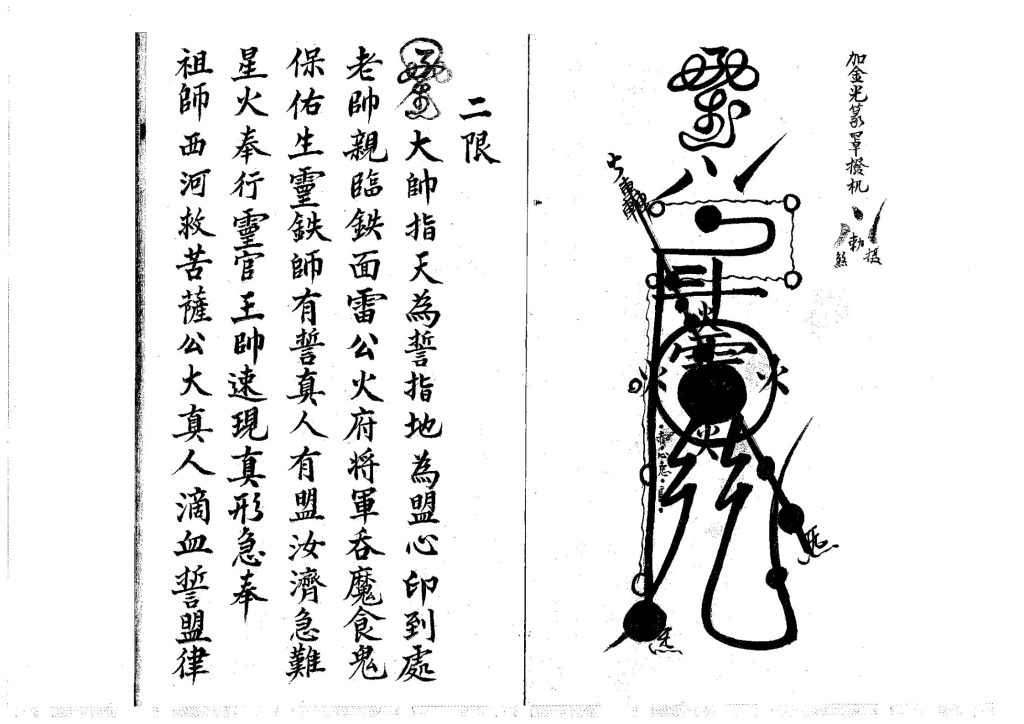 加金光篆罩撥机
勅
火
火
火
火
二限
大帥指天為誓指地為盟心印到處
老帥親臨鉄面雷公火府将軍吞魔食鬼
保佑生靈鉄師有誓真人有盟汝濟急難
星火奉行靈官王帥速現真形急奉
祖師西河救苦薩公大真人滴血誓盟律